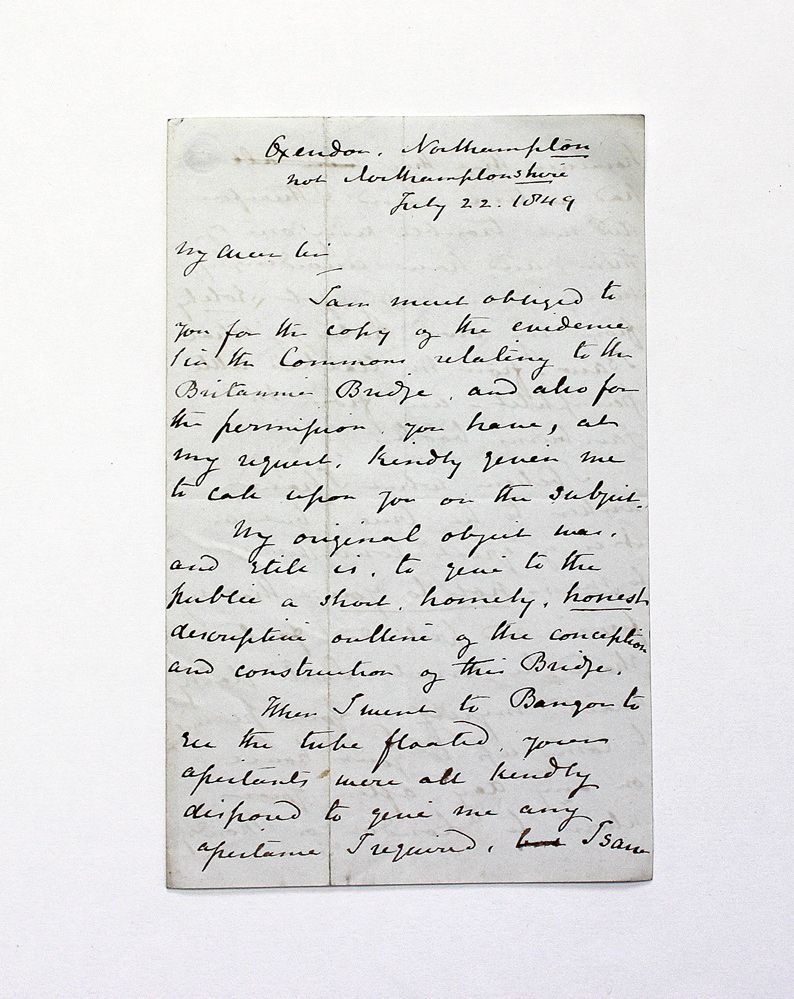 Oxendon, Northampton
not Northamptonshire
July 22. 1849
My dear Sir
I am much obliged to
you for the copy of the evidence
in the Commons relating to the
Britannia Bridge, and also for
the permission, you have, at
my request, kindly given me
to call upon you on the subject.
My original object was,
and still is, to give to the
public a short, homely, honest
descriptive outline of the conception
and construction of this Bridge.
When I went to Bangor to
see the tube floated, your
assistants were all kindly
disposed to give me any
assistance I required, but I saw